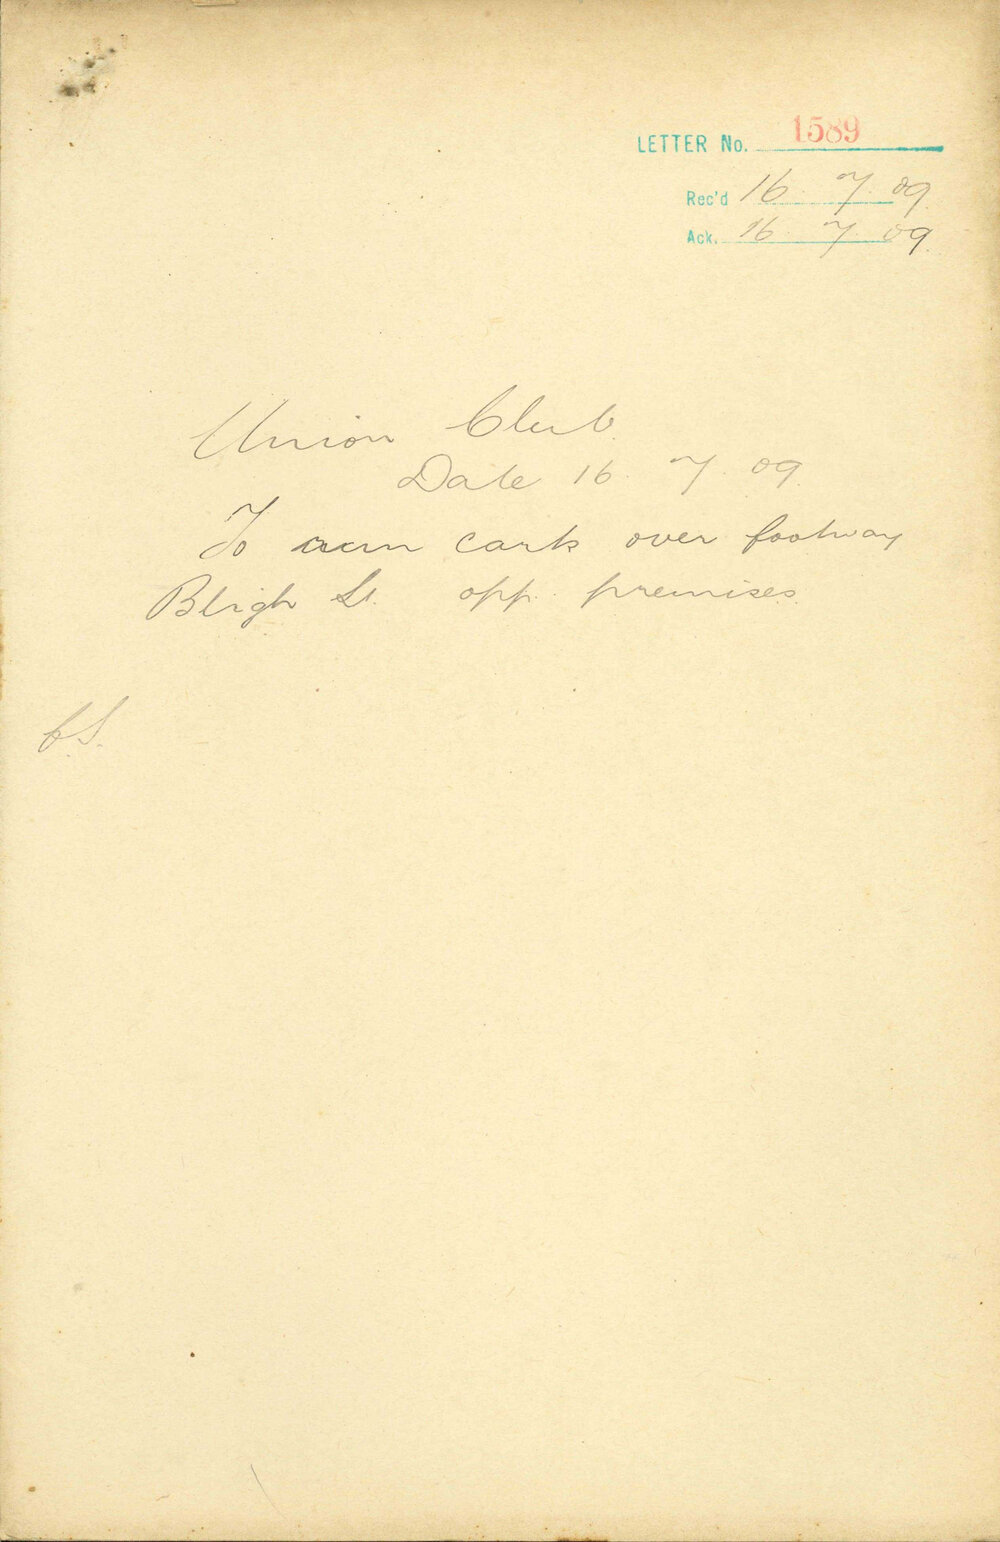 LETTER No. 1589
Rec'd 16. 7. 09.
Ack. 16. 7. 09.
Union Club.
Date 16. 7. 09.
To run carts over footway
Bligh St. opp. premises.